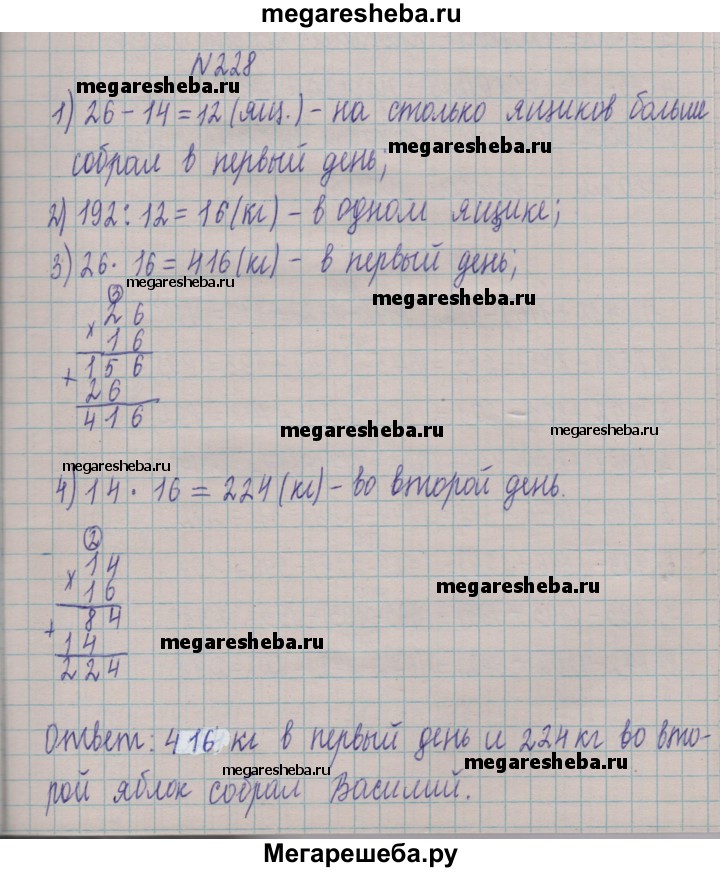 megaresheba.ru
N228
megaresheba.ru
1) 26 - 14 = 12 (ящ.) - на столько ящиков больше
megaresheba.ru
собрал в первый день;
megaresheba.ru
2) 192 : 12 = 16 (кг) - в одном ящике;
3) 26 · 16 = 416 (кг) - в первый день;
megaresheba.ru
megaresheba.ru
3
26
× 16
156
+ 26
416
megaresheba.ru
megaresheba.ru
megaresheba.ru
4) 14 · 16 = 224 (кг) - во второй день.
2
megaresheba.ru
14
× 16
megaresheba.ru
84
+ 14
megaresheba.ru
224
Ответ: 416 кг в первый день и 224 кг во вто-
megaresheba.ru
megaresheba.ru
рой яблок собрал Василий.
Мегарешеба.ру